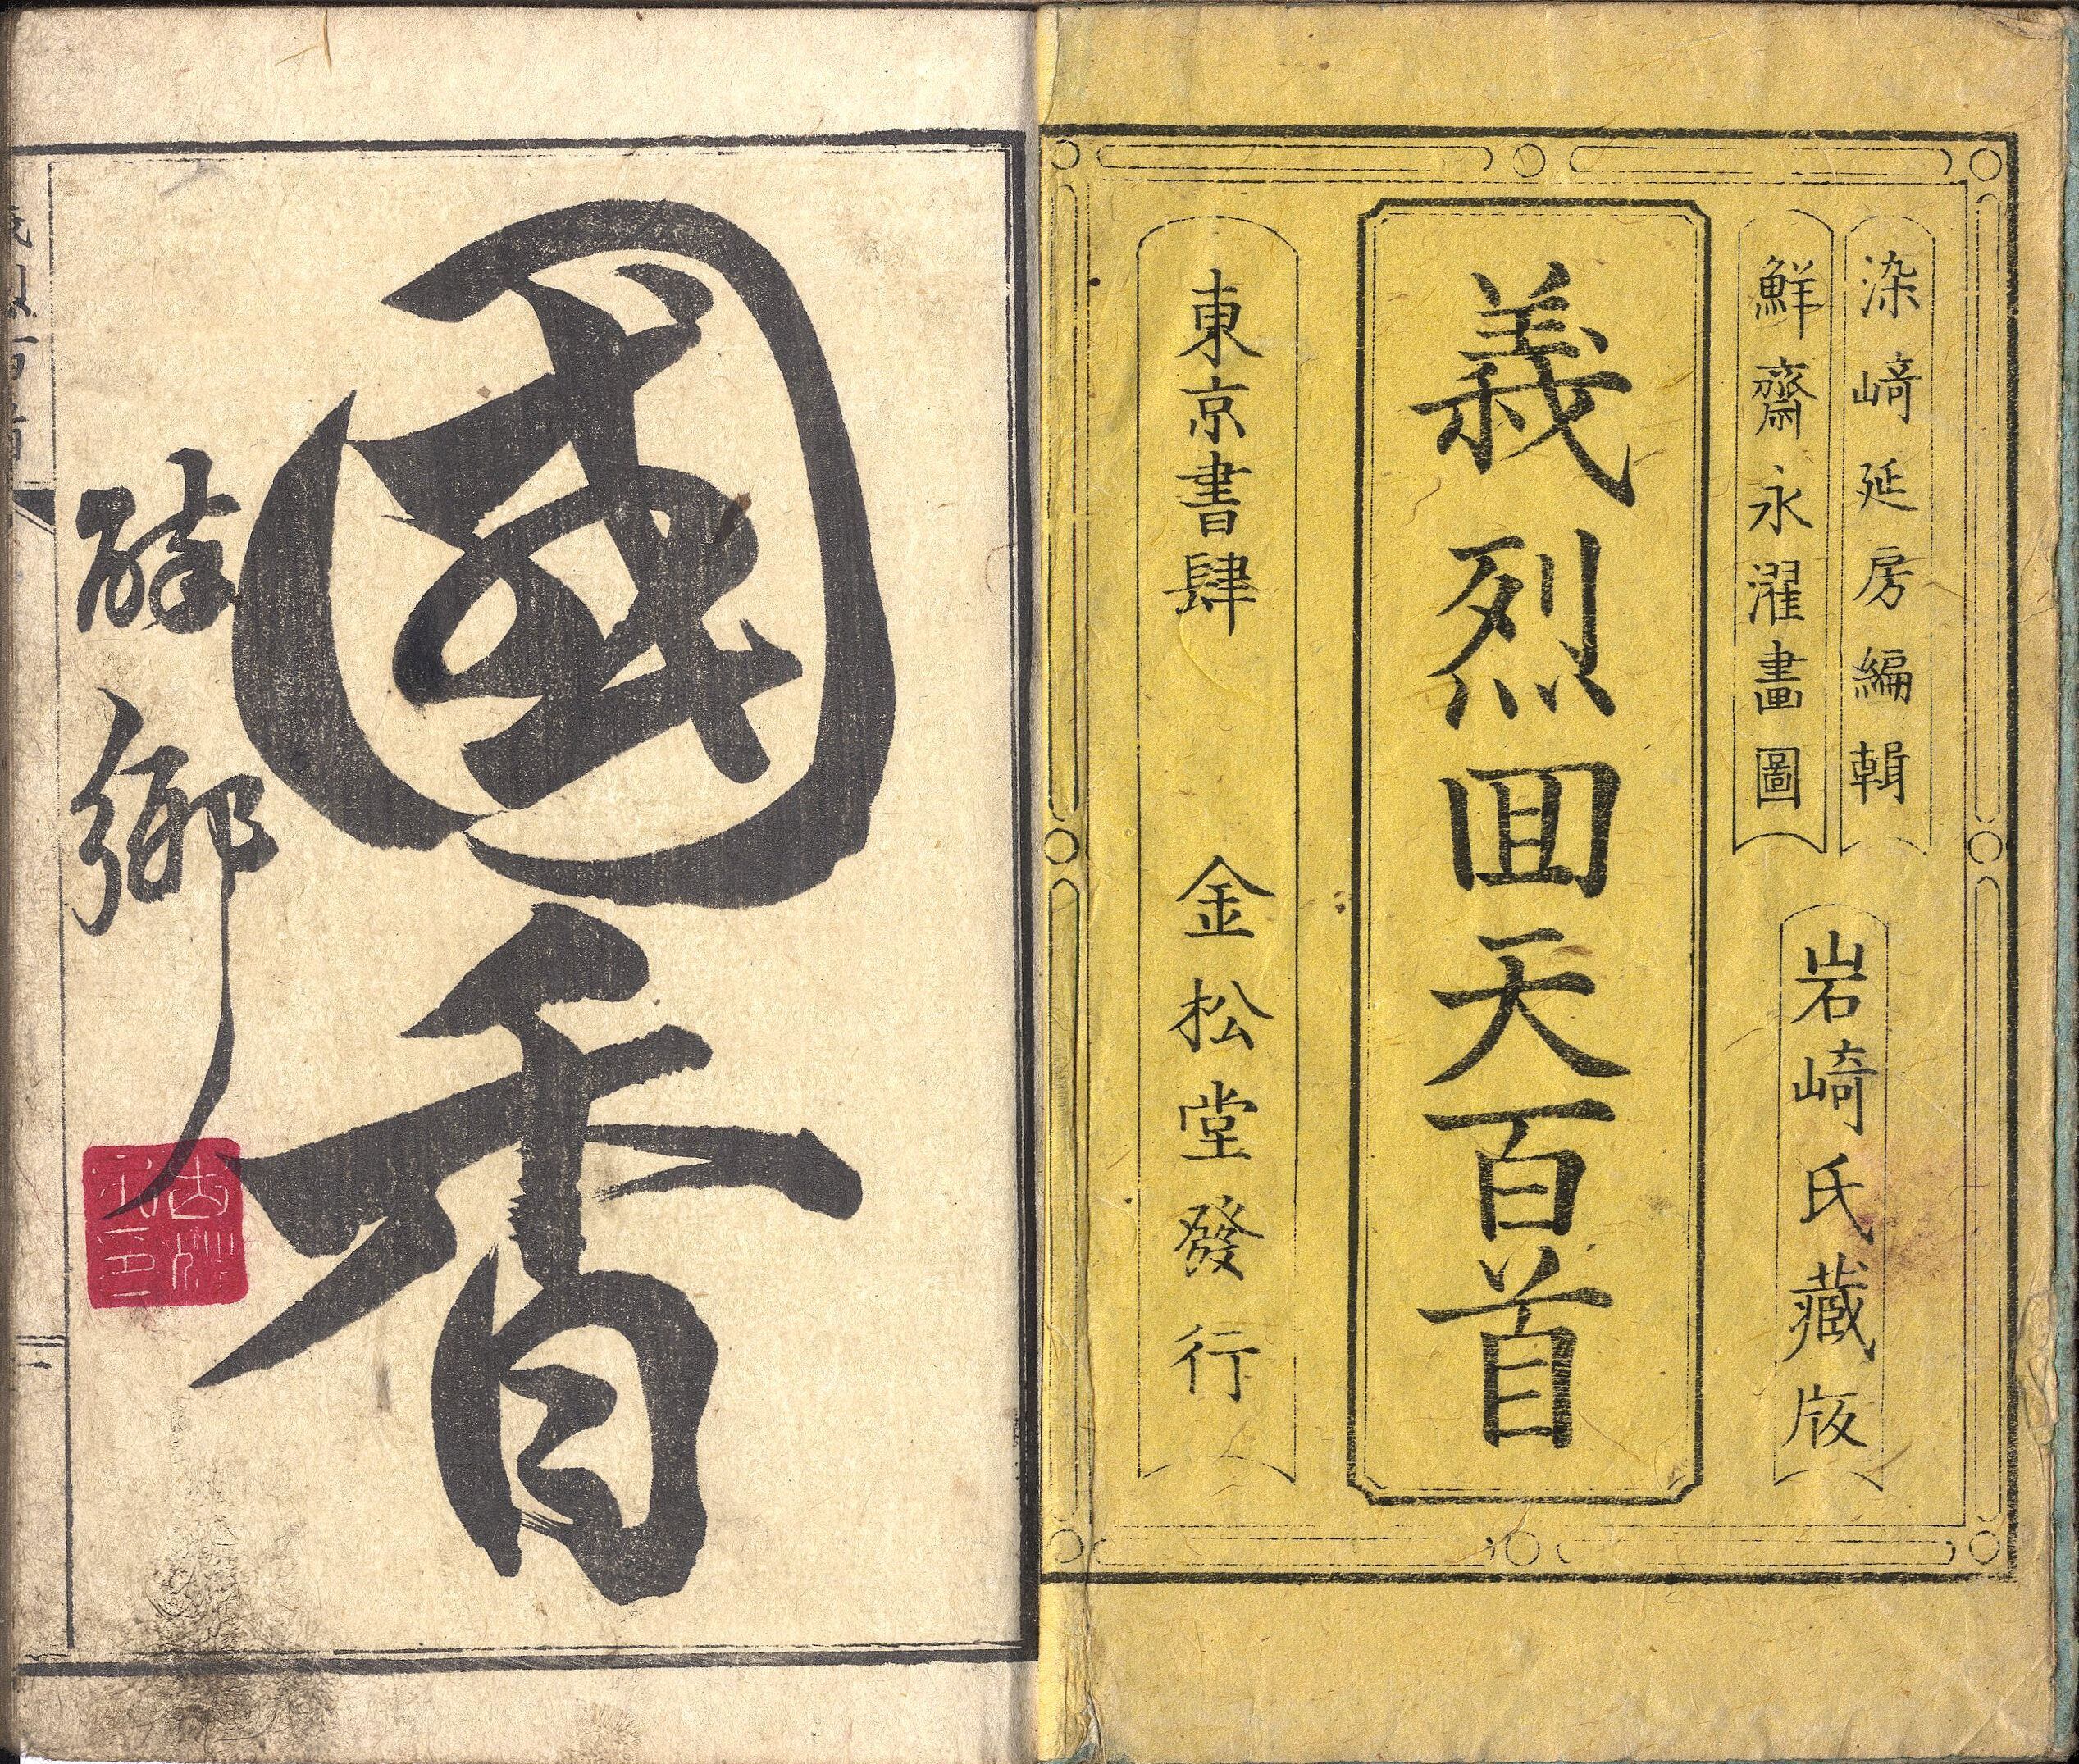 染﨑延房編輯
鮮齋永濯畫圖
岩﨑氏藏版
義烈回天百首
東京書肆 金松堂發行
國香
醉鄉